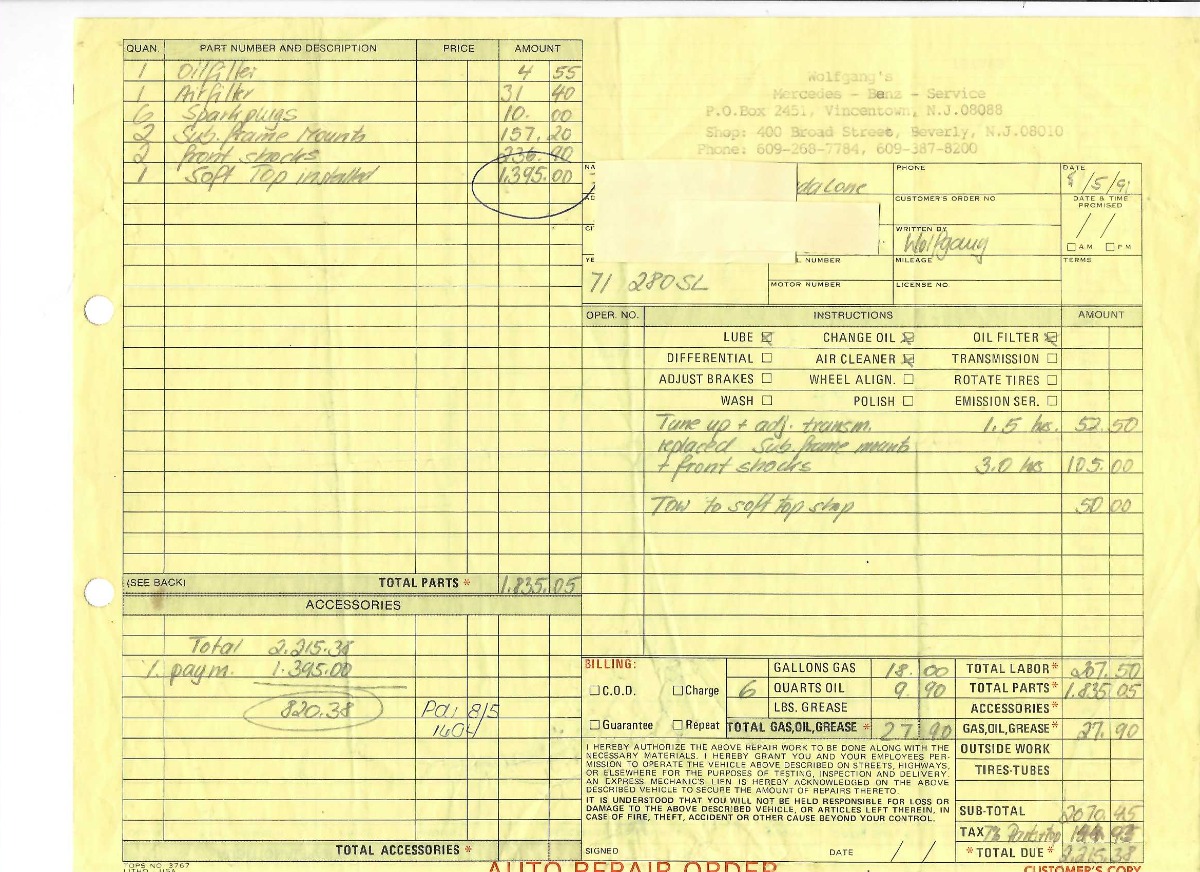 QUAN. PART NUMBER AND DESCRIPTION PRICE AMOUNT
1 Oilfilter 4 55
1 Airfilter 31 40
6 Sparkplugs 10. 00
2 Sub.frame Mounts 157. 20
2 front shocks 236. 90
1 Soft Top installed 1.395.00
(SEE BACK) TOTAL PARTS * 1.835.05
ACCESSORIES
Total 2.215.38
1. paym. 1.395.00
820.38 8/5
1404
TOTAL ACCESSORIES *
TOPS NO. 3767
LITHO. USA
Wolfgang's
Mercedes - Benz - Service
P.O.Box 2451, Vincentown, N.J.08088
Shop: 400 Broad Street, Beverly, N.J.08010
Phone: 609-268-7784, 609-387-8200
NA PHONE DATE
/5/91
CUSTOMER'S ORDER NO DATE & TIME PROMISED
WRITTEN BY / /
Wolfgang ☐ A M ☐ P M
YE L NUMBER MILEAGE TERMS
71 280SL
MOTOR NUMBER LICENSE NO.
OPER. NO. INSTRUCTIONS AMOUNT
LUBE ☒ CHANGE OIL ☒ OIL FILTER ☒
DIFFERENTIAL ☐ AIR CLEANER ☒ TRANSMISSION ☐
ADJUST BRAKES ☐ WHEEL ALIGN. ☐ ROTATE TIRES ☐
WASH ☐ POLISH ☐ EMISSION SER. ☐
Tune up + adj. transm. 1.5 hrs. 52.50
replaced Sub.frame mounts
+ front shocks 3.0 hrs 105.00
Tow to soft top shop 50 00
BILLING:
☐ C.O.D. ☐ Charge
☐ Guarantee ☐ Repeat
GALLONS GAS 18. 00
6 QUARTS OIL 9. 90
LBS. GREASE
TOTAL GAS,OIL,GREASE * 27 90
TOTAL LABOR* 207.50
TOTAL PARTS* 1.835.05
ACCESSORIES*
GAS,OIL,GREASE* 27. 90
OUTSIDE WORK
TIRES-TUBES
SUB-TOTAL 2070.45
TAX 144.93
* TOTAL DUE * 2.215.38
I HEREBY AUTHORIZE THE ABOVE REPAIR WORK TO BE DONE ALONG WITH THE
NECESSARY MATERIALS. I HEREBY GRANT YOU AND YOUR EMPLOYEES PER-
MISSION TO OPERATE THE VEHICLE ABOVE DESCRIBED ON STREETS, HIGHWAYS,
OR ELSEWHERE FOR THE PURPOSES OF TESTING, INSPECTION AND DELIVERY.
AN EXPRESS MECHANIC'S LIEN IS HEREBY ACKNOWLEDGED ON THE ABOVE
DESCRIBED VEHICLE TO SECURE THE AMOUNT OF REPAIRS THERETO.
IT IS UNDERSTOOD THAT YOU WILL NOT BE HELD RESPONSIBLE FOR LOSS OR
DAMAGE TO THE ABOVE DESCRIBED VEHICLE, OR ARTICLES LEFT THEREIN, IN
CASE OF FIRE, THEFT, ACCIDENT OR OTHER CAUSE BEYOND YOUR CONTROL.
SIGNED DATE / /
AUTO REPAIR ORDER
CUSTOMER'S COPY